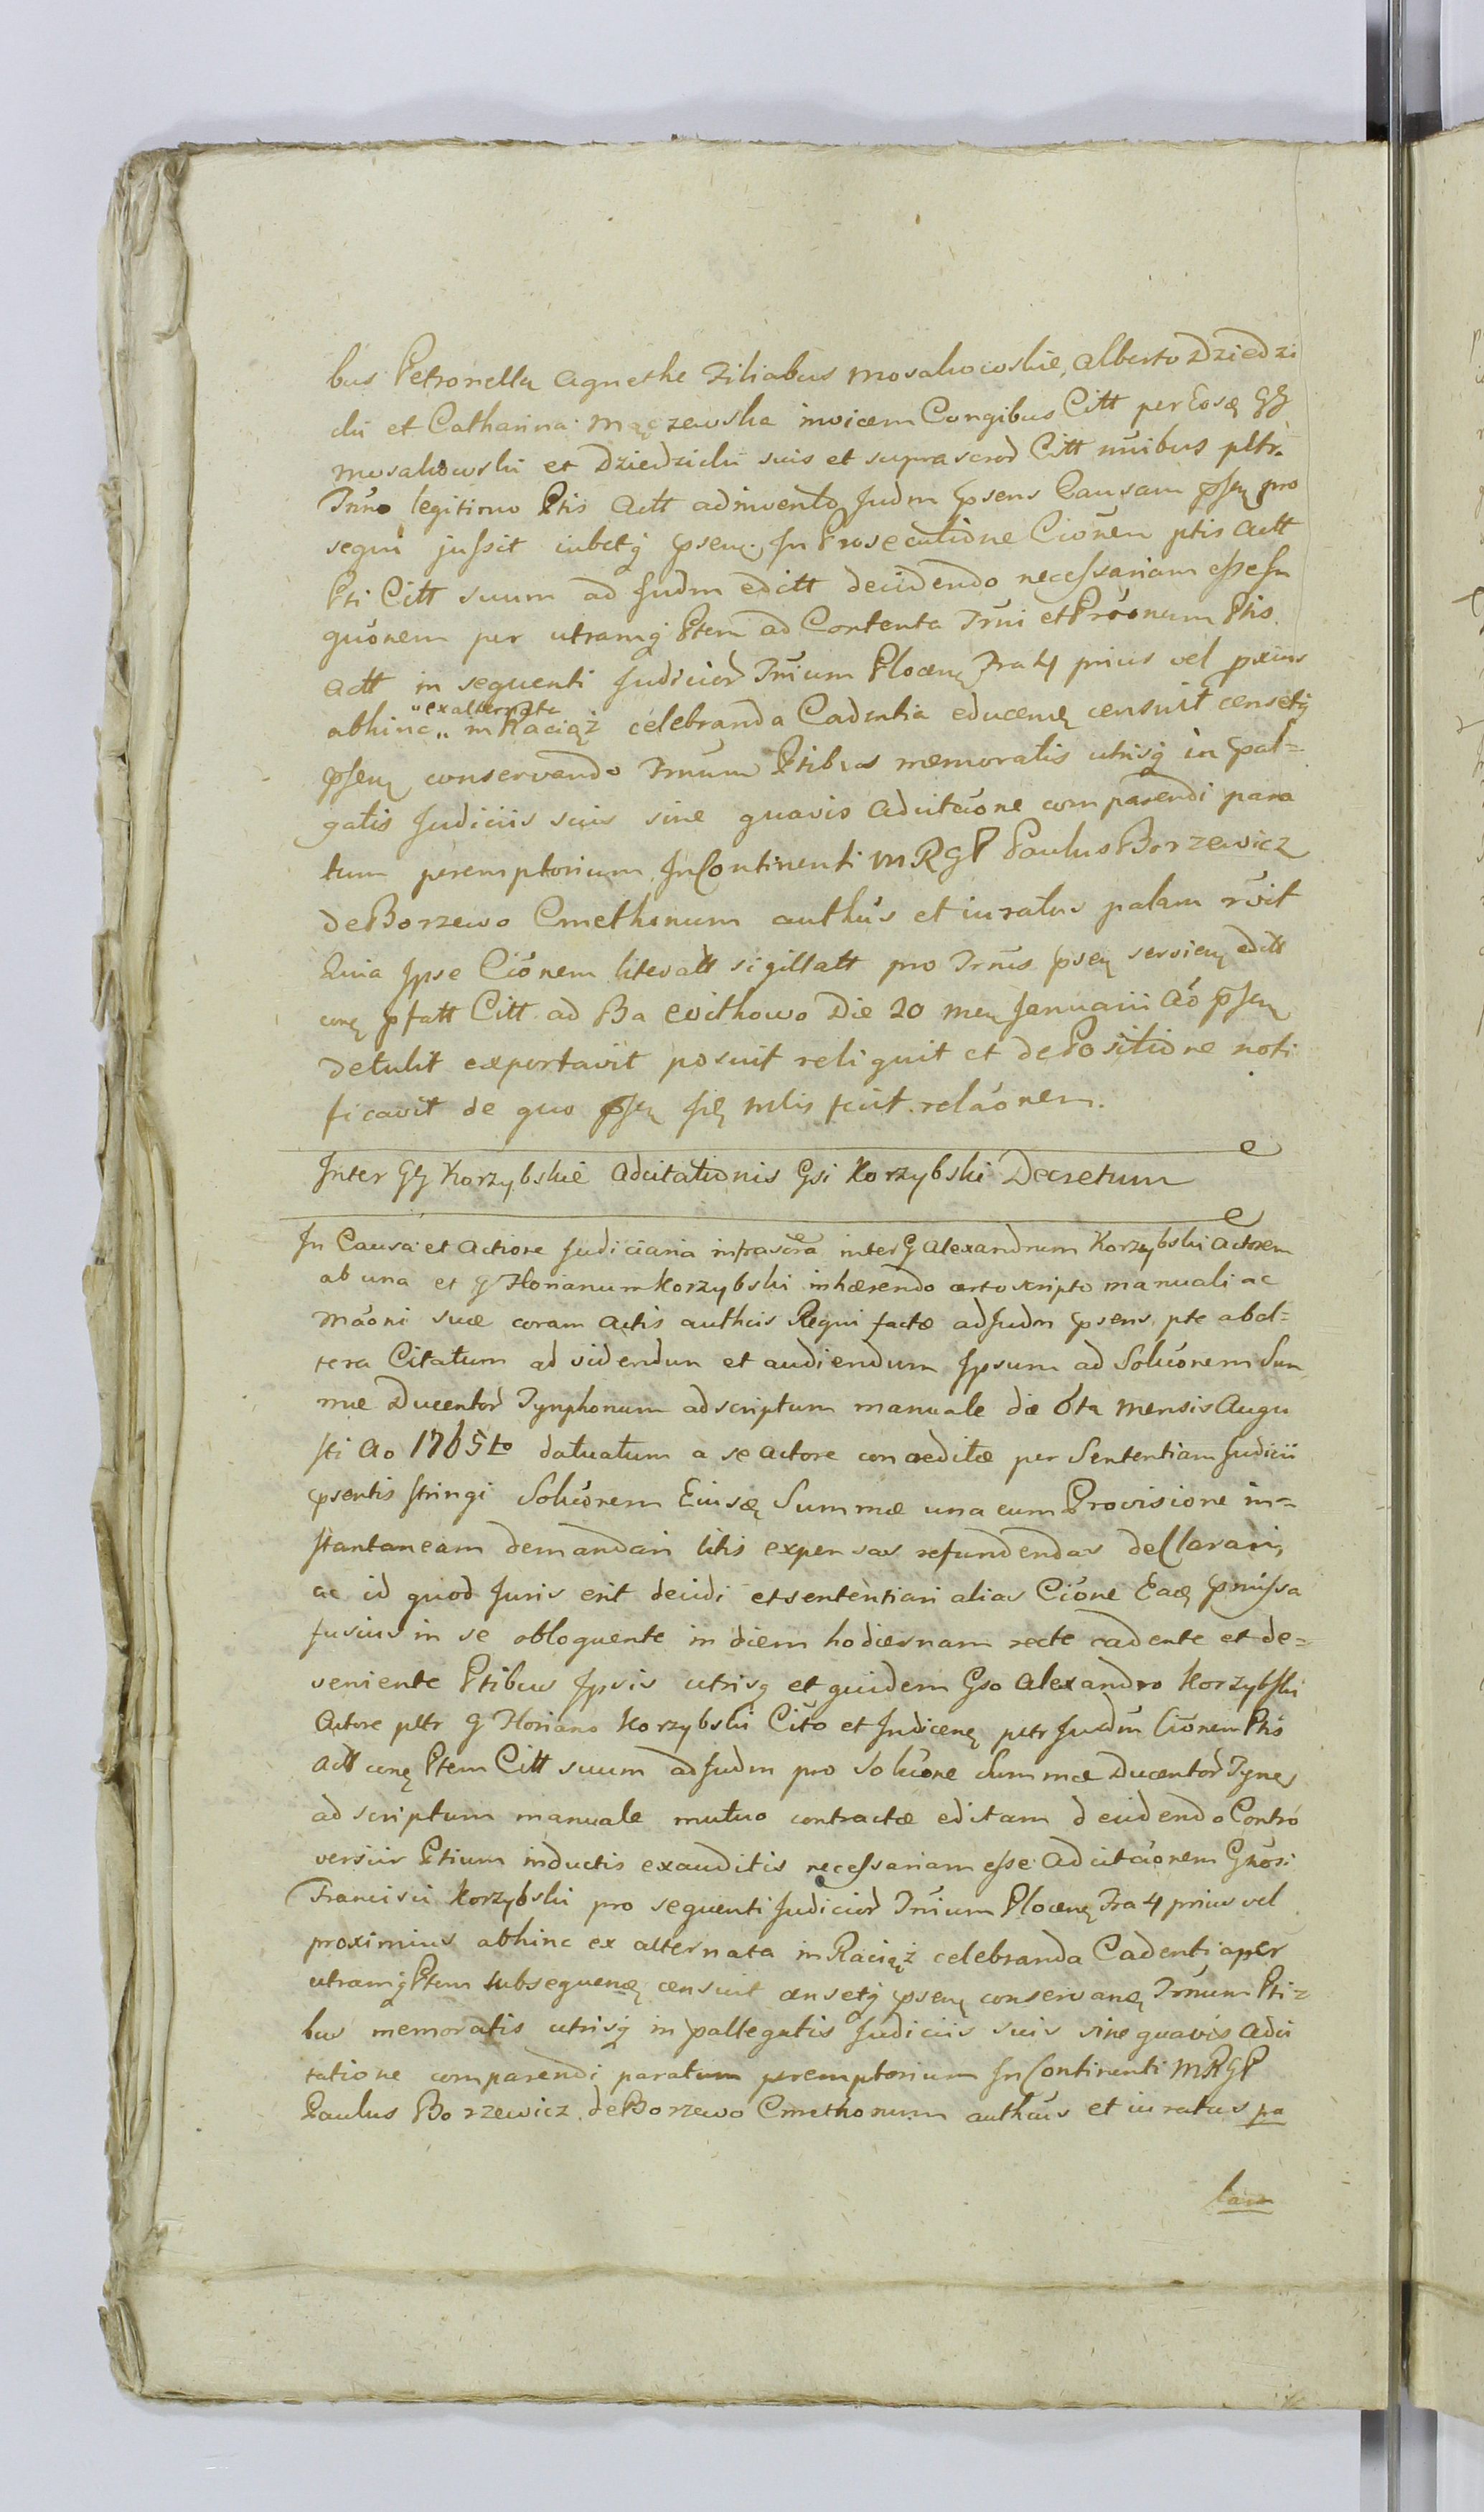 bus Petronella Agneshe Filiabus Mosakowskie, Alberto Dziedzi
cki et Catharina Mączewska invicem Congibus Citt per Eosq GG
Mosakowski et Dziedzicki suis et suprascrod Citt nuibus pltr.
Trno legitimo Ptis Actt adinvento Judm psens Causam psen pro
sequi jussit iubetq psen. In Prosecutione Cionem ptis Actt
Pti Citt suum ad Judm editt decidendo necessariam esse In
quonem per utramq Ptem ad Contenta Trni et Proonum Ptis
Actt in sequenti Judicior Trnium Plocen Fra 4 prius vel pxius
abhinc "ex alternata in Raciąż celebranda Cadentia educenę censuit censetq
psen conservando Trnum Ptibus memoratis utrisq in pal=
gatis Judiciis suis sine quavis Adcitaone comparendi para
tum peremptorium. In Continenti MRGP Paulus Borzewicz
de Borzewo Cmethonum authus et iuratus palam rcit
Quia Ipse Cionem literatt sigillatt pro Trnis psen servien editt
conę pfatt Citt ad Ba Die 20 men Januarii Ao psen
detulit exportavit posuit reliquit et de Positione noti
ficavit de quo psen fecit relaonem.
Inter GG Korzybskie Adcitationis Gsi Korzybski Decretum
In Causa et Actione Judiciaria infrascra inter G Alexandrum Korzybski Actorem
ab una et G Florianum Korzybski inhærendo certo scripto manuali ac
Maoni suæ coram Actis authcis Regni factæ ad Judm psens pte ab al=
tera Citatum ad videndum et audiendum Ipsum ad Soluonem Sum
mæ Ducentor Tynphonum ad scriptum manuale die 6ta Mensis Augu
sti Ao 1765to datuatum a se Actore concreditæ per Sententiam Judicii
psentis stringi Soluonem Eiusq Summæ una cum Provisione in=
stantaneam demandari litis expensas refundendas declarari,
ac id quod Juris erit decidi et sententiari alias Cione Eaq pmissa
fusius in se obloquente in diem hodiernam recte cadente et de=
veniente Ptibus Ipsis utrisq et quidem Gso Alexandro Korzybski
Actore pltr G Floriano Korzybski Cito et Judicenę pltr Judm Cionem Ptis
Actt conę Ptem Citt suum ad Judm pro Soluone Summæ Ducentor Tynę
ad scriptum manuale mutuo contractæ editam decidendo Contro
versiis Ptium inductis exauditis necessariam esse Adcitaonem Gnosi
Francisci Korzybski pro sequenti Judicior Trnium Plocenę Fra 4 prius vel
proximius abhinc ex alternata in Raciąż celebranda Cadentia per
utramq Ptem subsequenę censuit censetq psen conservanę Trnum Pti=
bus memoratis utrisq in pallegatis Judiciis suis sine quavis Adci
tatione comparendi paratum peremptorium In Continenti MRGP
Paulus Borzewicz de Borzewo Cmethonum authcus et iuratus pa
lam